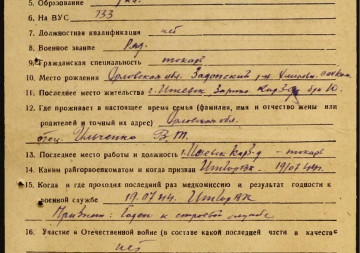 5. Образование
6. На ВУС 133
7. Должностная квалификация нет
8. Военное звание Ряд.
9. Гражданская специальность токарь
10. Место рождения Орловская обл. Задонский р-н
11. Последнее место жительства г. Ижевск
12. Где проживает в настоящее время семья (фамилия, имя и отчество жены или
родителей и точный их адрес) Орловская обл.
отец Ильченко В. Т.
13. Последнее место работы и должность г. Ижевск токарь
14. Каким райгорвоенкоматом и когда призван 19/07 44 г.
15. Когда и где проходил последний раз медкомиссию и результат годности к
военной службе 19.07.44
Признан: Годен к строевой службе
16. Участие в Отечественной войне (в составе какой последней части и в качестве
нет